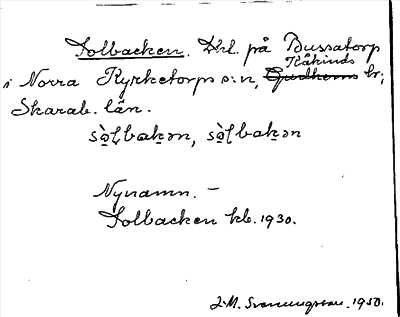 Solbacken. Lhl. på Bussatorp
Kåkinds
i Norra Kyrketorps s:n, Gudhems hr;
Skarab. län.
sò̤lbakən, sò̤lbakən
Nynamn. –
Solbacken kb. 1930.
J.M. Svenungsson. 1950.